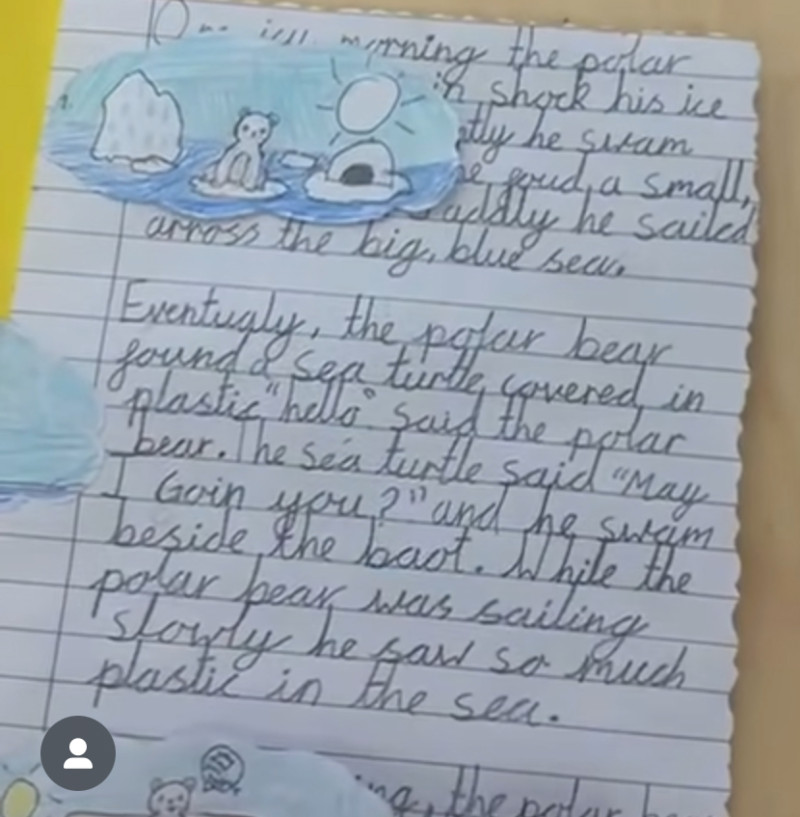 One icy morning the polar
in shock his ice
he swam
a small,
he sailed
arross the big, blue sea.
Eventugly, the polar bear
found a sea turtle covered in
plastic "hello" said the polar
bear. The sea turtle said "May
I Goin you?" and he swam
beside the baot. While the
polar bear was sailing
slowly he saw so much
plastic in the sea.
the polar